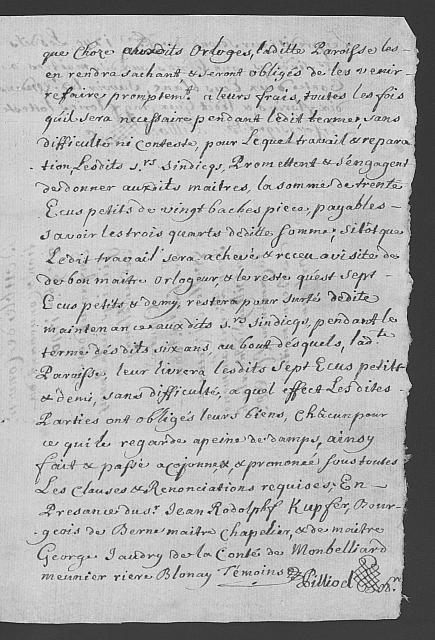 que Choze auxdits Orloges, laditte Paroisse les-
en rendra sachant & seront obligés de les venir-
reffaire promptemt. a leurs frais, toutes les fois
quil sera necessaire pendant ledit terme, sans
difficulté ni conteste, pour lequel travail & repara
tion, Lesdits s.rs sindicqs, Promettent & s'engagent
de donner auxdits maitres, la somme de trente
Ecus petits de vingt baches piece, payables-
savoir les trois quarts deditte somme, sitôt que
Ledit travail sera achevé & receu a visite de
de bon maitre orlogeur, & le reste qu'est sept-
Ecus petits & demy, restera pour surté dedite
maintenance auxdits s.rs sindicqs, pendant le
terme desdits six ans, au bout desquels, ladte.
Paroisse, leur livrera lesdits sept Ecus petits
& demi, sans difficulté, a quel effect Lesdites-
Parties ont obligés leurs biens, châcun pour
ce qui le regarde a peine de damps, ainsy
fait & passé a & prononcé sous toutes
Les clauses & Renonciations requises, En-
Presance du sr. Jean Rodolphf Kupfer, Bour-
geois de Berne maitre chapelier, & de maitre
George Jaudry de la Conté de Monbelliard
meunier riere Blonay Témoins
Pilliod